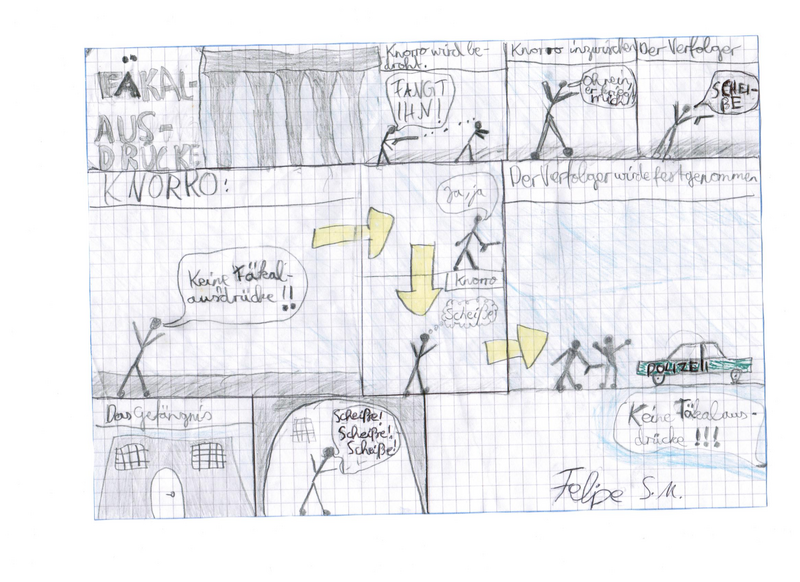 FÄKAL-
AUS-
DRÜCKE
Knorro wird be-
droht.
FANGT
IHN!
Knorro inzwischen
Oh nein,
er kriegt
mich!!
Der Verfolger
SCHEI-
ßE
KNORKO:
Keine Fäkal-
ausdrücke!!
Ja, ja
Knorro
Scheiße
Der Verfolger wird festgenommen
POLIZEI
Das Gefängnis
Scheiße!
Scheiße!
Scheiße!
Keine Fäkalaus-
drücke!!!
Felipe S.M.